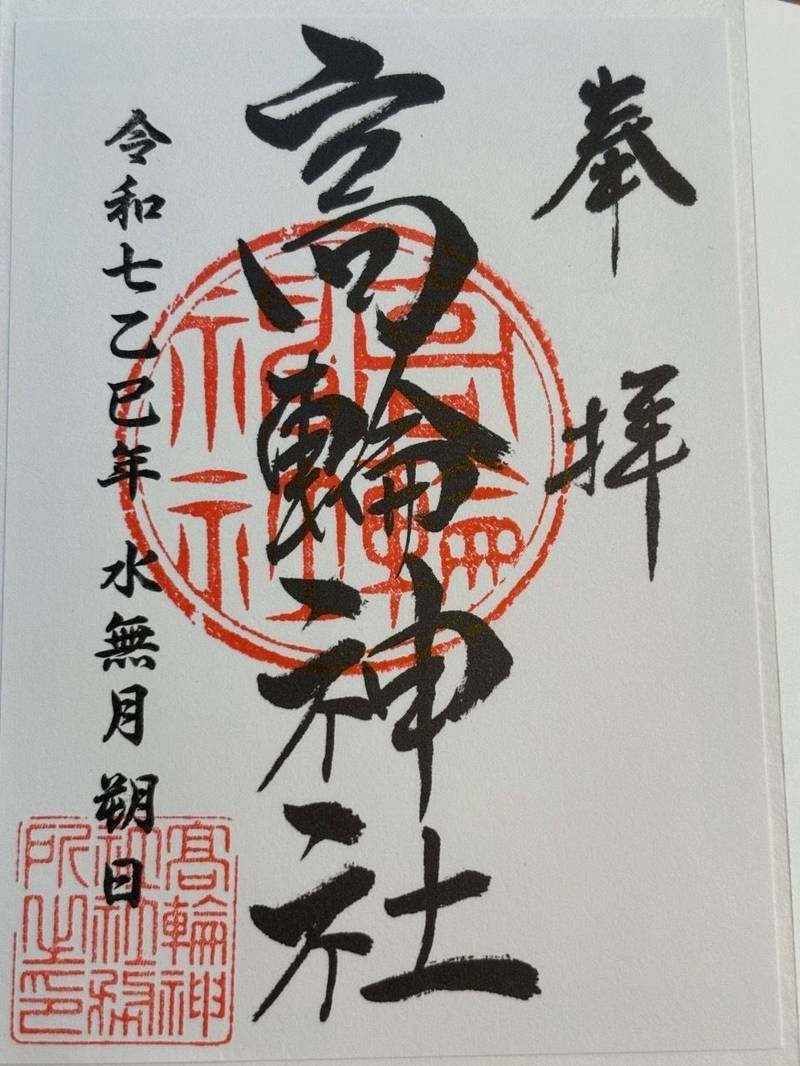 奉拝
高輪神社
令和七乙巳年 水無月 朔日
高輪
神社
髙輪神
社社務
所之印